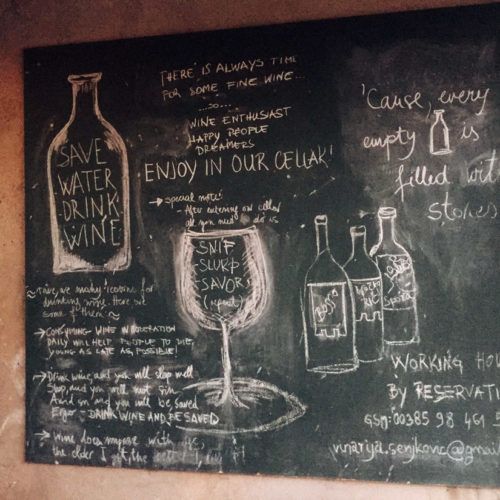 THERE IS ALWAYS TIME
FOR SOME FINE WINE...
...SO...
WINE ENTHUSIAST
HAPPY PEOPLE
DREAMERS
ENJOY IN OUR CELLAR!
→ special note:
- After entering our cellar
all you need to do is
SNIF
SLURP
SAVOR
(repeat)
SAVE
WATER
DRINK
WINE
There are many reasons for
drinking wine. Here are
some of them:
→ CONSUMING WINE IN MODERATION
DAILY WILL HELP PEOPLE TO DIE
YOUNG AS LATE AS POSSIBLE!
→ Drink wine and you will sleep well
Sleep, and you will not sin
Avoid sin and you will be saved
Ergo - DRINK WINE AND BE SAVED
→ Wine does improve with age,
the older I get, the
'Cause, every
empty is
filled with
stories
Bosso
WORKING HOU
BY RESERVATI
GSM: 00385 98 461 5
vinarija.senjkovic@gmail